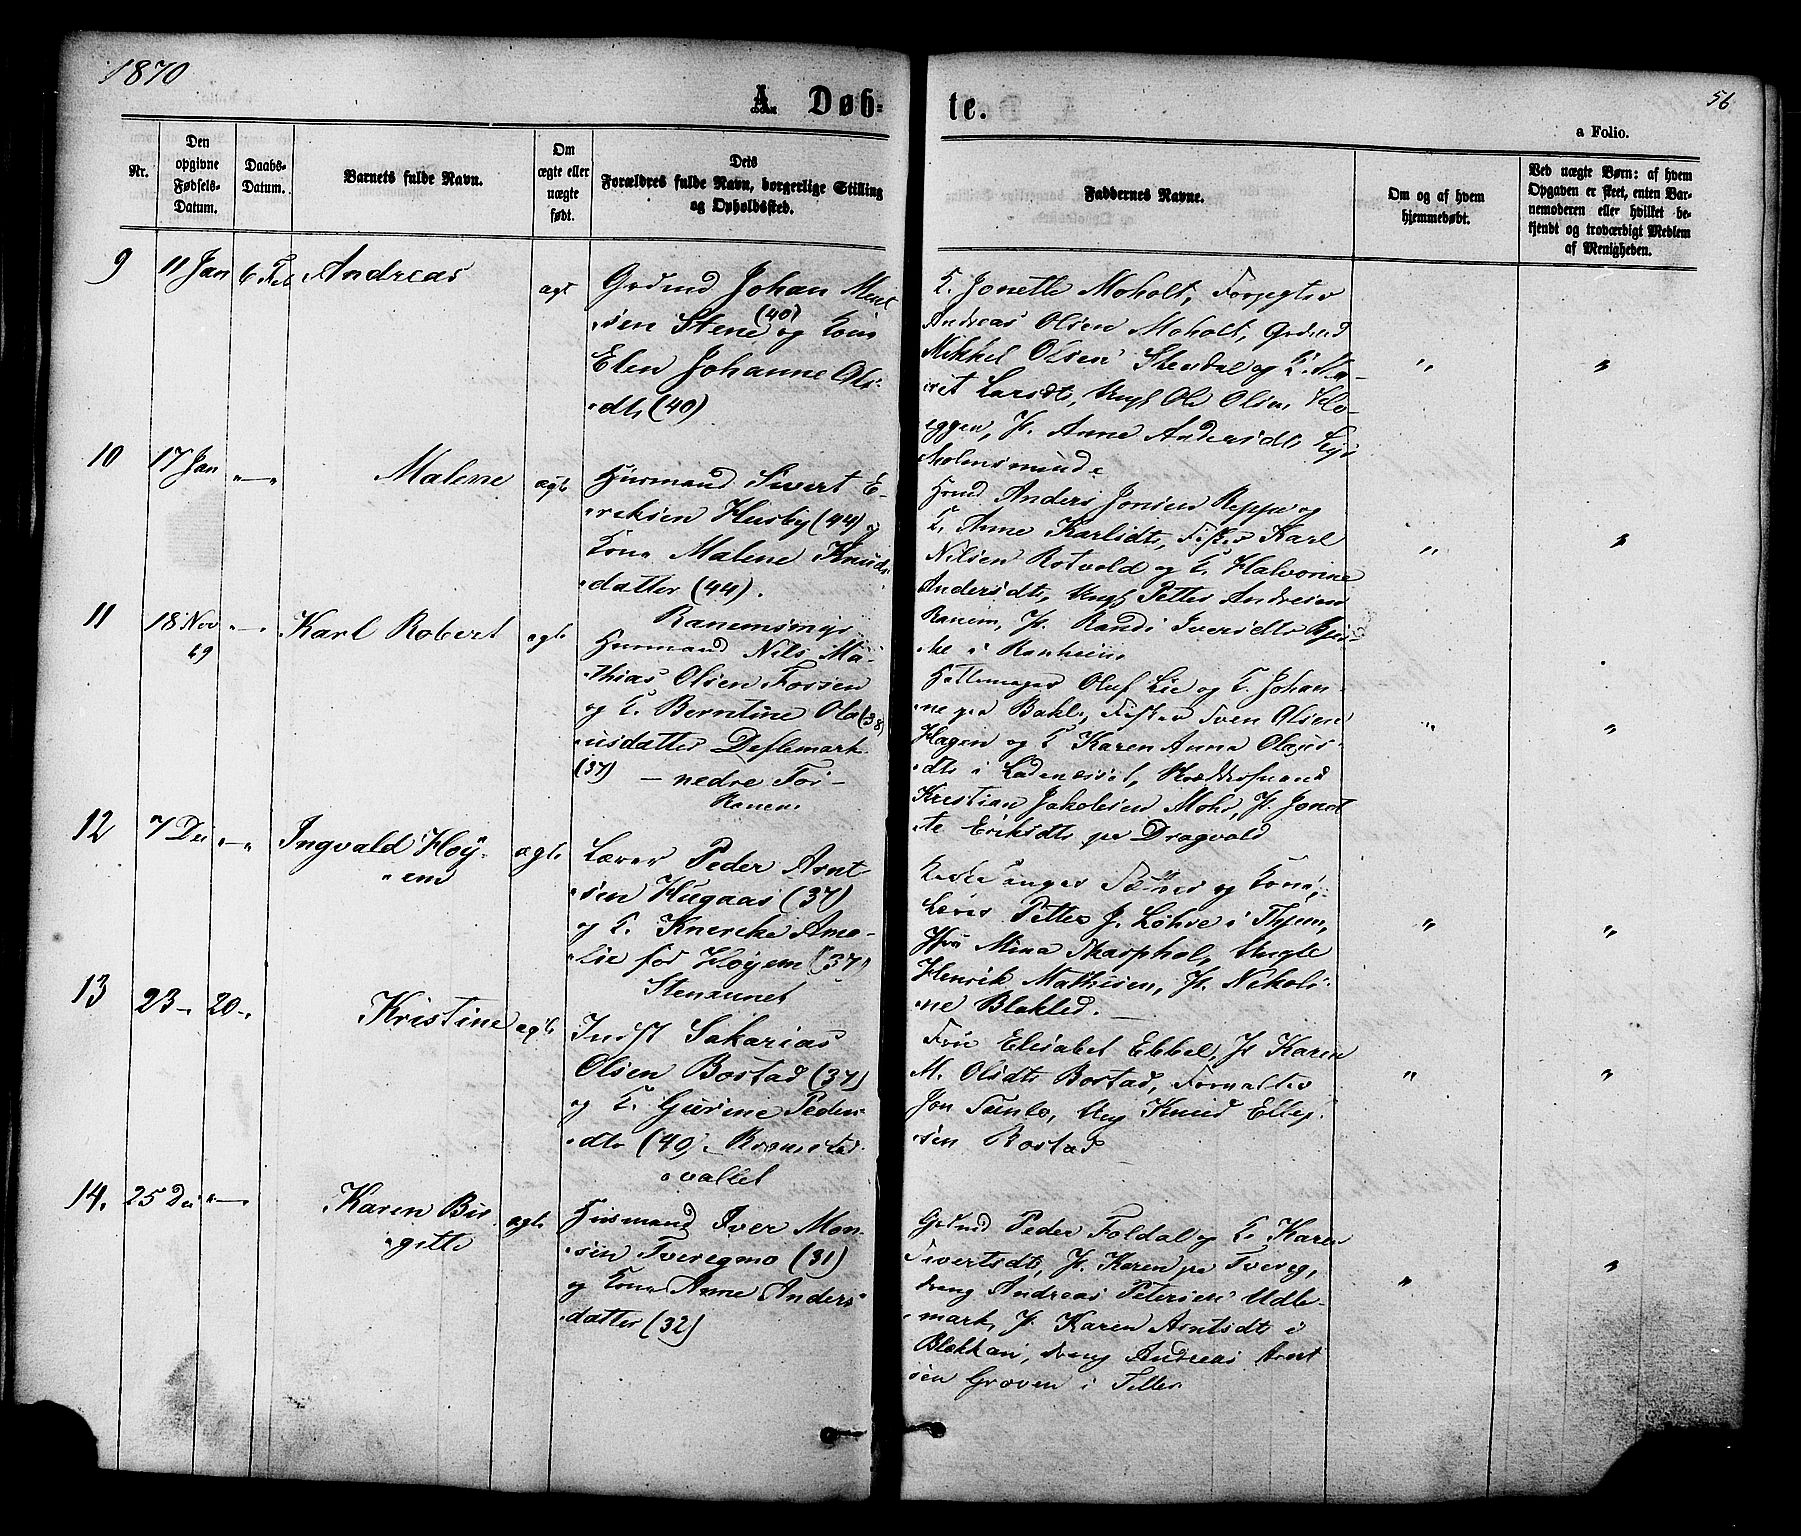 1870
A. Døb-
te.
56
a Folio.
Nr.
Den
opgivne
Fødsels-
Datum.
Daabs-
Datum.
Barnets fulde Navn.
Om
ægte eller
uægte
født.
Deis
Forældres fulde Navn, borgerlige Stilling
og Opholdssted.
Faddernes Navne.
Om og af hvem
hjemmedøbt.
Ved uægte Børn: af hvem
Opgaven er skeet, enten Bar-
nemoderen eller hvilket be-
kjendt og troværdigt Medlem
af Menigheden.
9
11 Jan
6 Feb
Andreas
ægt
Grdmd Johan
sen Stene (40) og Kone
Elen Johanne Ols
dtr (40)
K. Jonette Moholt, Forpagter
Andreas Olsen Moholt, Grdmd
Mikkel Olsen Stendal og K. Ma-
rit Larsdtr, Ungk Ole Olsen
eggen, P. Anne Andersdtr
10
17 Jan
" — "
Malene
ægte
Husmand Sivert E-
reksen Husby (44) og
Kone Malene Knuds
datter (44).
Anders Jonsen Reppe og
K. Anne Karlsdtr, Fisker Karl
Nilsen Rotvold og K. Halvorine
Andersdtr, Ungk Petter Andresen
Ranem, P. Randi Iversdtr
i Ranheim
11
18 Nov
69
" — "
Karl Robert
ægte
Husmand Nils Ma-
thias Olsen Forsen (38)
og K. Berntine Ola
usdatter Deflemark
(37) — nedre For-
Hattemager Oluf Lie og K. Johan-
ne pa Bakle, Fisker Sven Olsen
Hagen og K Karen Anna Olaus-
dtr i Ladenæsset,
Kristian Jakobsen Mohr, P. Jonet
te Eriksdtr pa Dragvold
12
7 Dec
" — "
Ingvald Høy-
em
ægte
Lærer Peder Arnt
sen Hugaas (37)
og K. Amalie
før Høyem (37)
Stenaunet
og Kone,
Lærer Petter J. Løhre i Thjem,
Frø Mina Skarphol, Ungk
Henrik Mathisen, P. Nikoli
ne Blakted. —
13
23 -
20 -
Kristine
ægte
Indst Sakarias
Olsen Bostad (37)
og K. Gurine Peders
dtr (40)
vallet
Frø Elisabet Ebbel, P Karen
M. Olsdtr Bostad, Forvalter
Jon Tunlo, Ung Knud Elling
sen Bostad
14.
25 Dec
" — "
Karen Bir
gitte
ægte
Husmand Iver Mon
sen Tveregmo (31)
og Kone Anne Anders
datter (32)
Grdmd Peder Foldal og K Karen
Sivertsdtr, P. Karen pa Tvereg,
dreng Andreas Petersen Udle-
mark, P. Karen Arntsdtr i
Blekkan, dreng Andreas Arnt
sen Grøven i Tiller